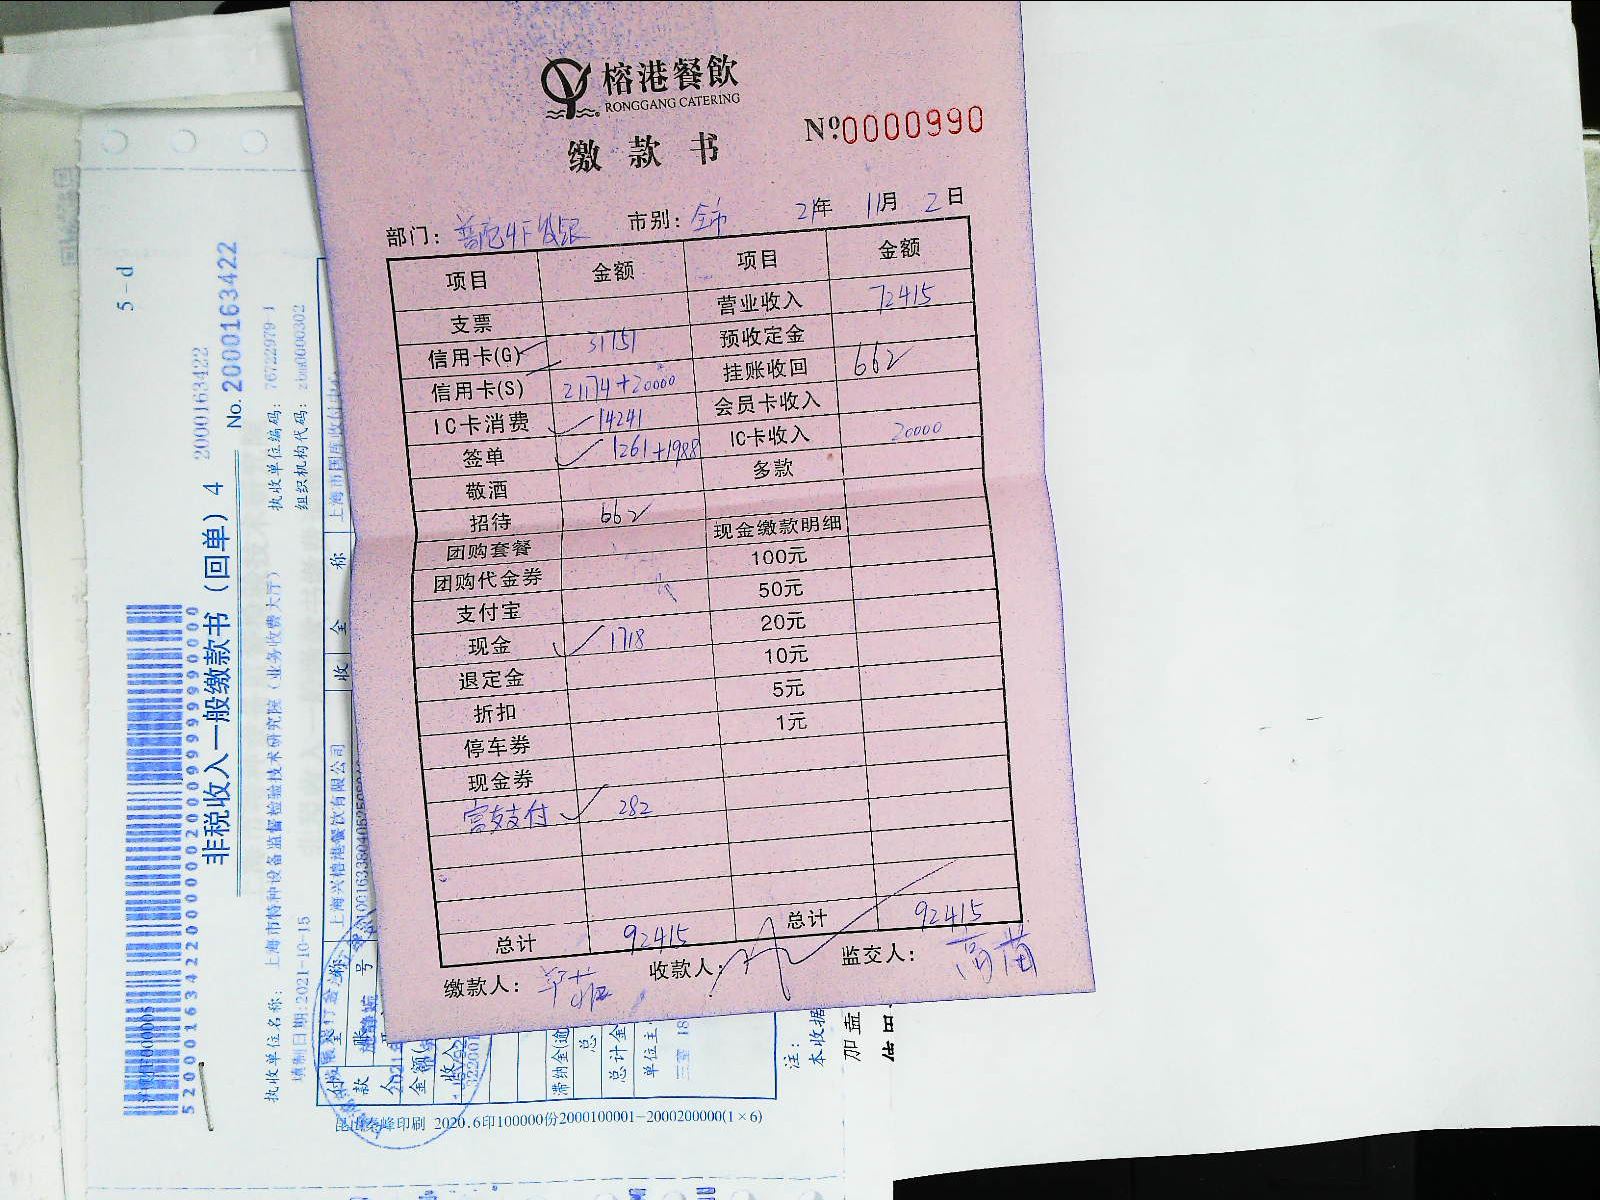 榕港餐飲
RONGGANG CATERING
缴款书
Nº0000990
部门: 市别: 全市 21年 11月 2日
项目 金额 项目 金额
支票 营业收入 72415
信用卡(G) 31751 预收定金
信用卡(S) 21174+20000 挂账收回 662
IC卡消费 14241 会员卡收入
签单 1261+1988 IC卡收入 20000
敬酒 多款
招待 662
团购套餐 现金缴款明细
团购代金券 100元
支付宝 50元
现金 1718 20元
退定金 10元
折扣 5元
停车券 1元
现金券
富友支付 282
总计 92415 总计 92415
缴款人: 收款人: 监交人: 高苗
5-d
2000163422
No. 2000163422
非税收入一般缴款书（回单）4
执收单位编码: 76722979-1
组织机构代码: zbm0000302
执收单位名称: 上海市特种设备监督检验技术研究院（业务收费大厅）
填制日期:2021-10-15
收 全 称
上海兴榕港餐饮有限公司
滞纳金(逾
总计金
单位主
注:
本收据
加盖
昆山秦峰印刷 2020.6印100000份2000100001-2000200000(1×6)